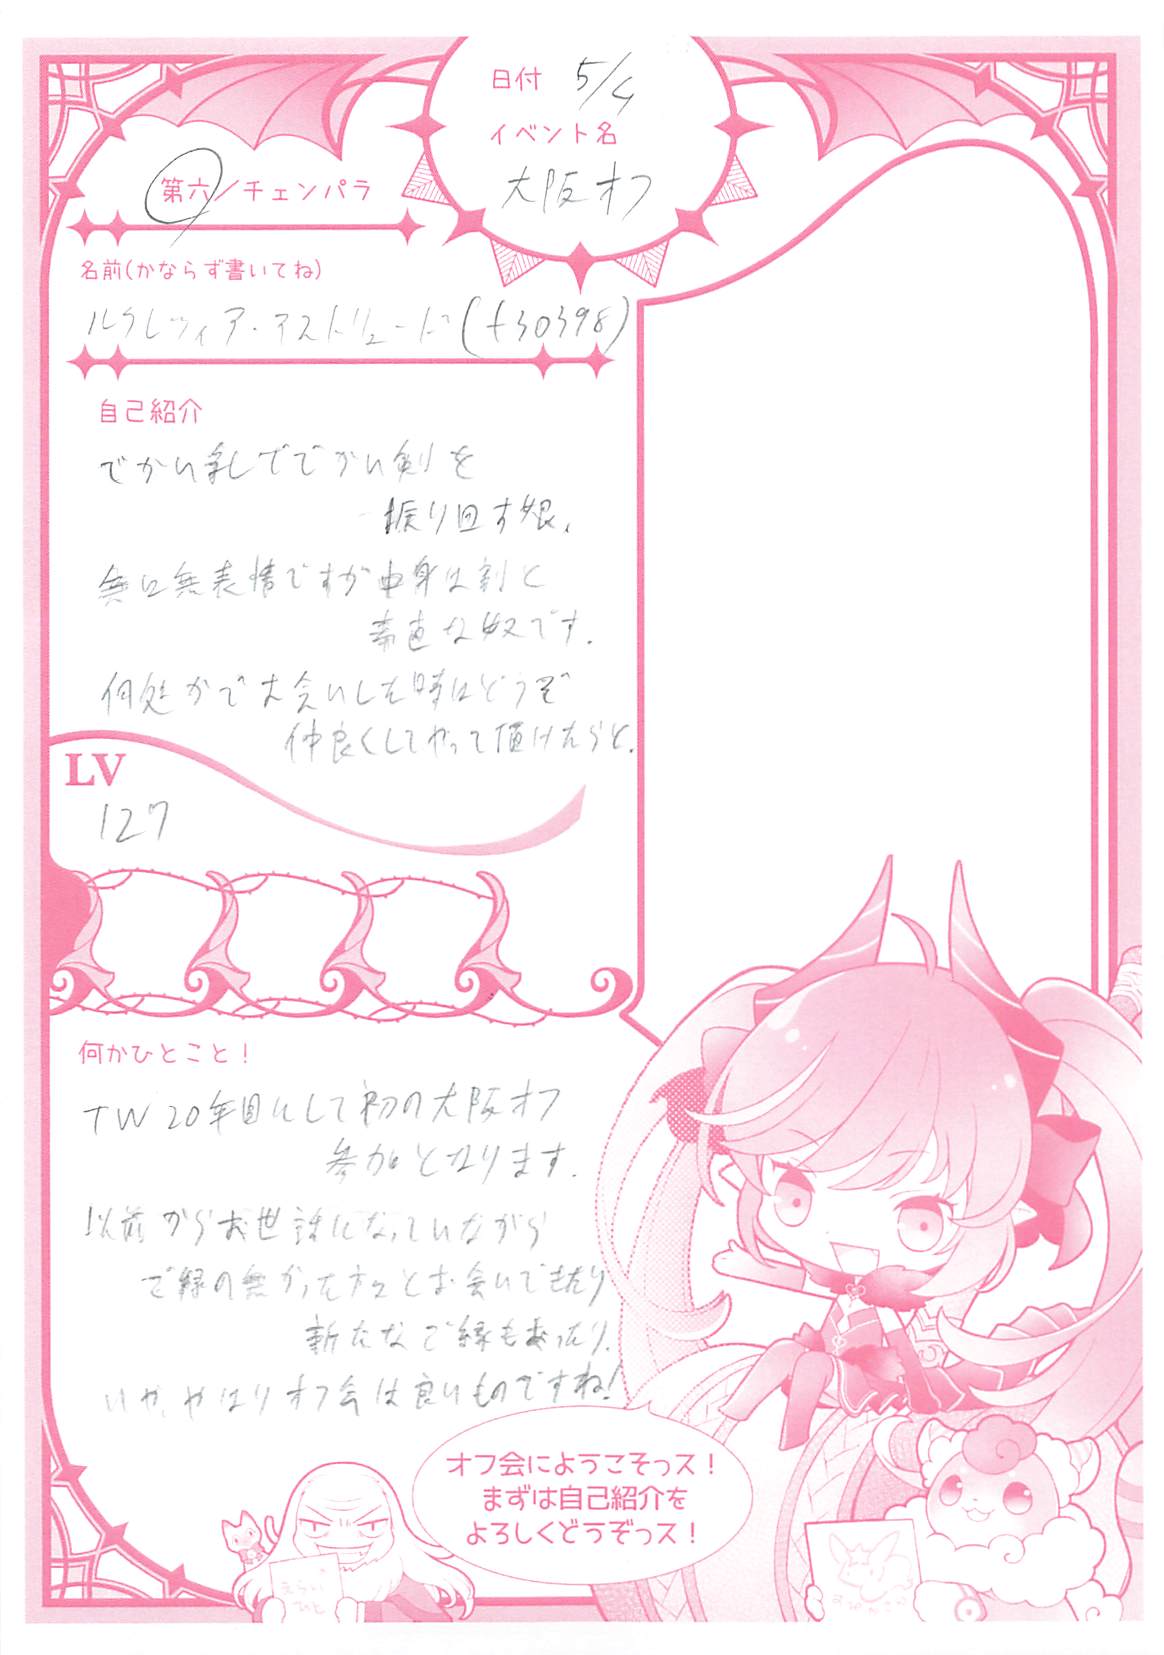 日付 5/4
イベント名
大阪オフ
第六/チェンパラ
名前(かならず書いてね)
ルクレツィア・アストリュード(f30398)
自己紹介
でかい乳ででかい剣を
振り回す娘。
無口無表情ですが中身は割と
素直な奴です。
何処かでお会いした時はどうぞ
仲良くしてやって頂けたらと。
LV
127
何かひとこと!
TW20年目にして初の大阪オフ
参加となります。
以前からお世話になっていながら
ご縁の無かった方々とお会いできたり
新たなご縁もあったり。
いや、やはりオフ会は良いものですね!
オフ会にようこそっス!
まずは自己紹介を
よろしくどうぞっス!
えらい
ひと